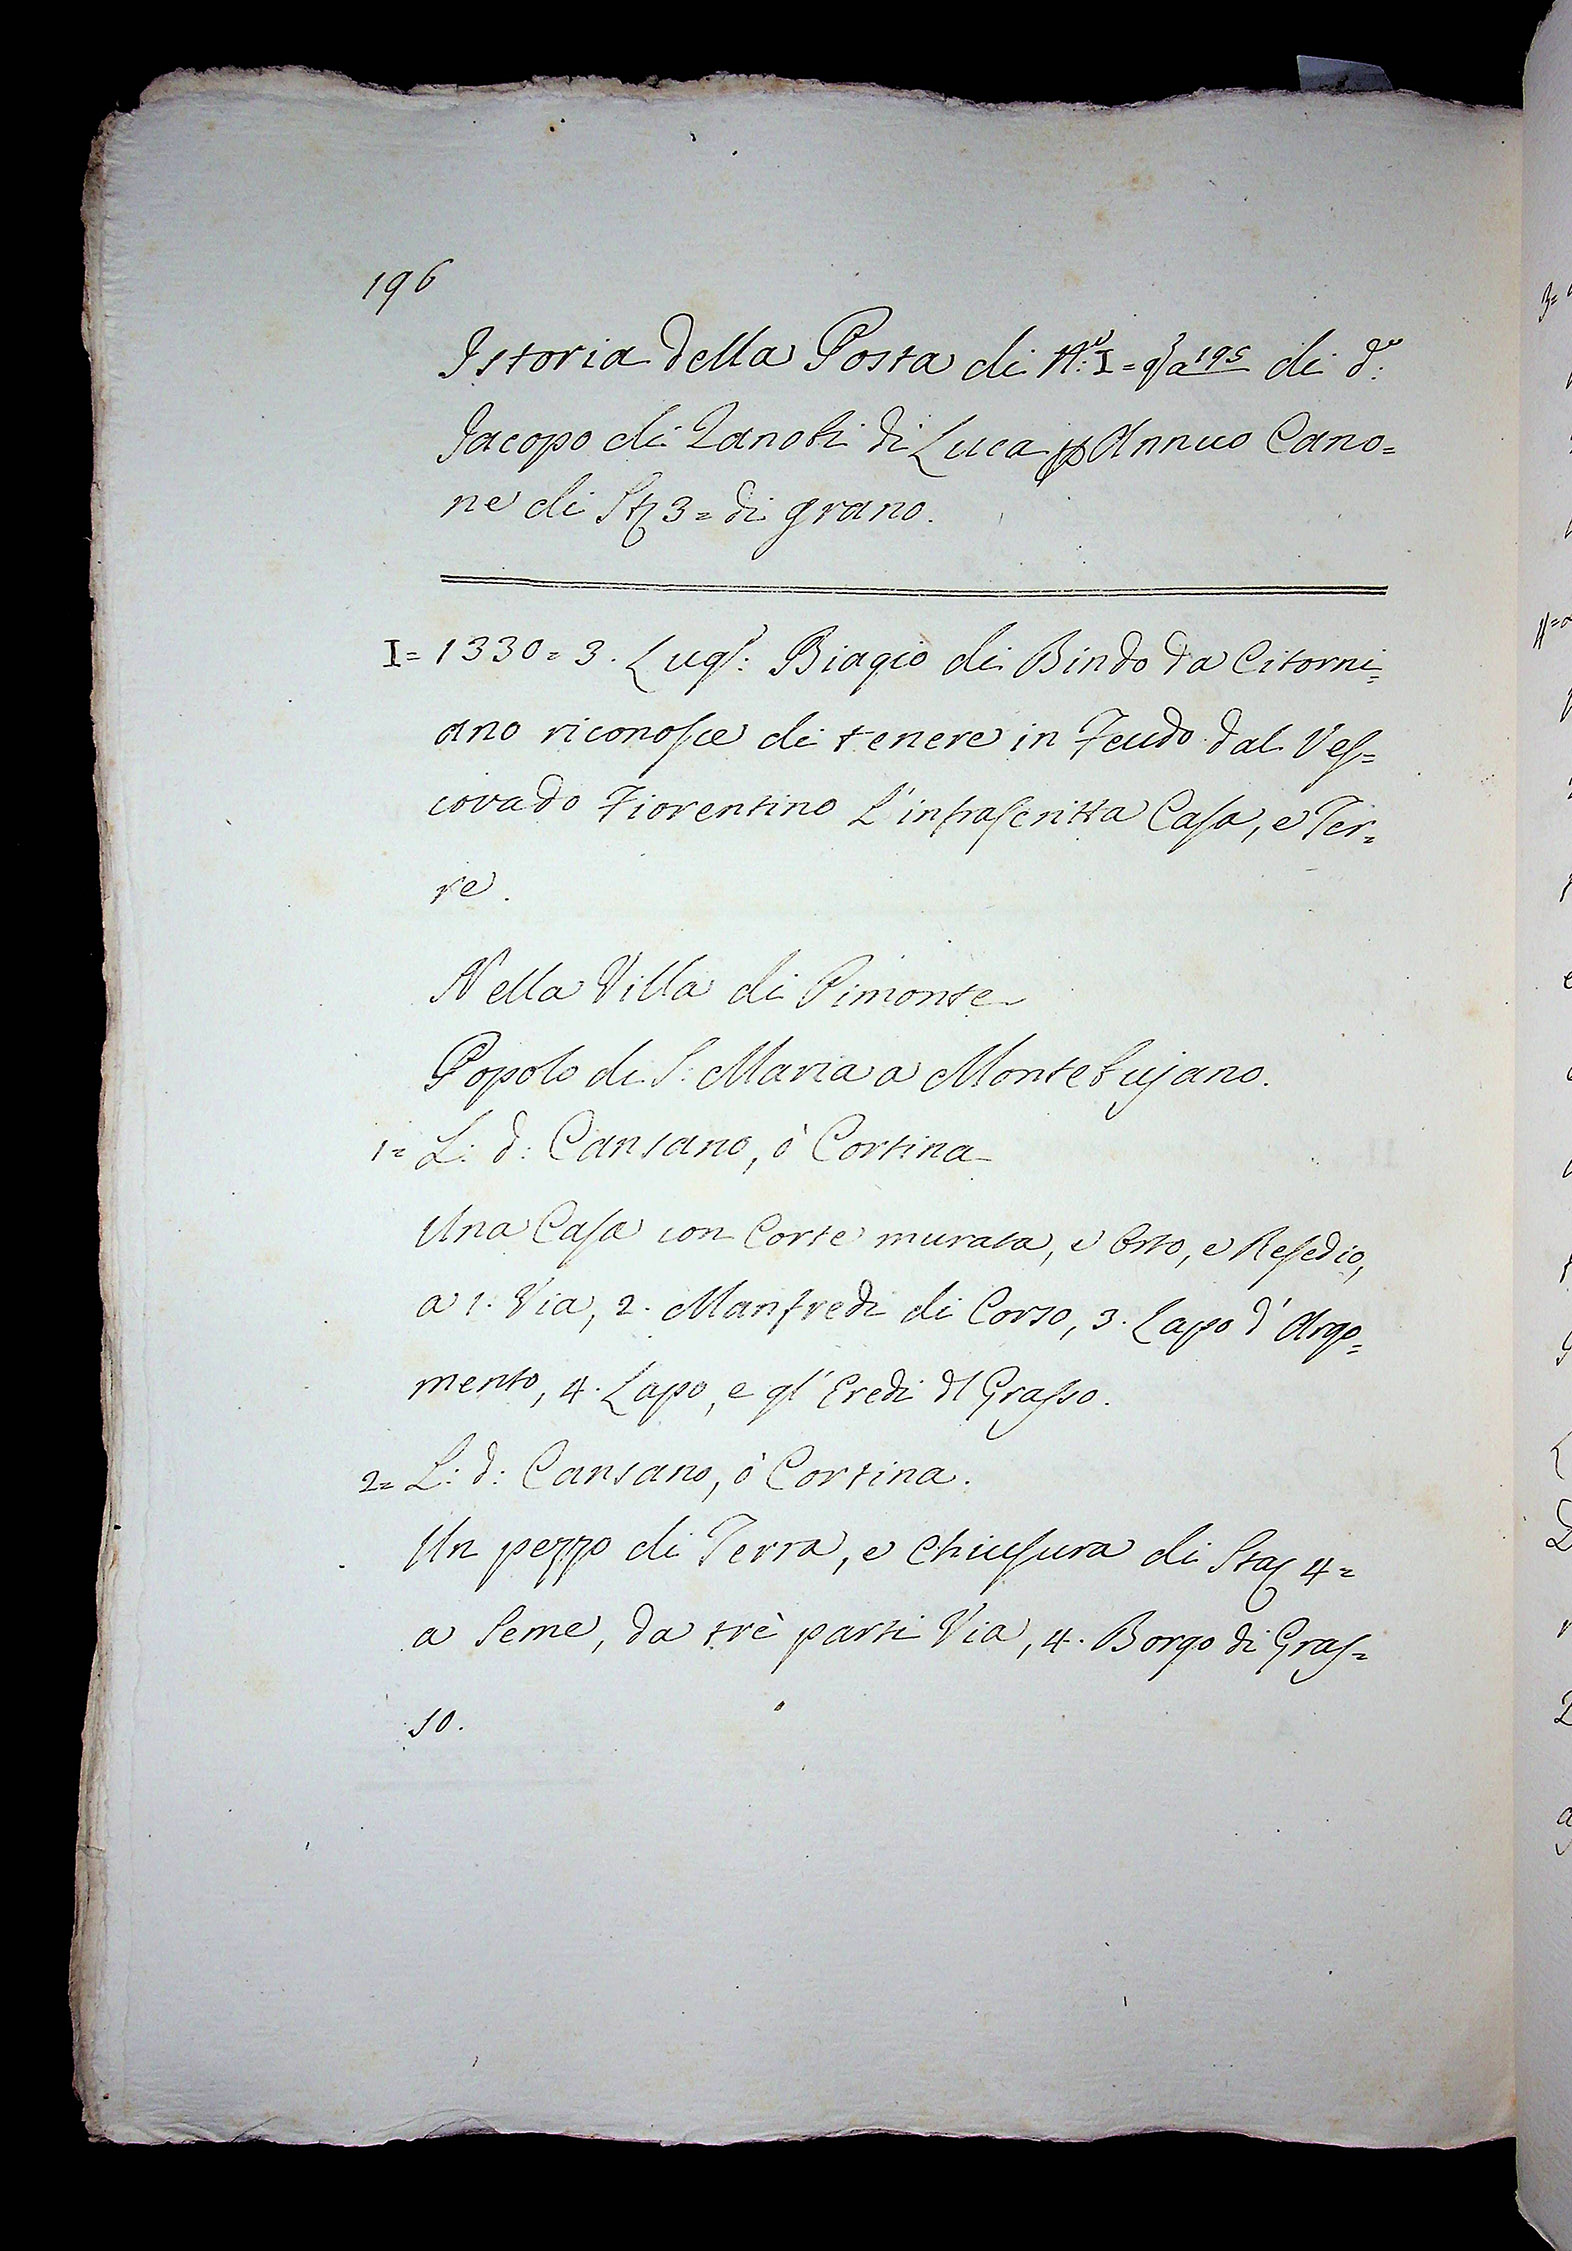 196
Istoria della Posta di N.º I = qª 195 di d.º
Jacopo di Zanobi di Luca p Annuo Cano=
ne di St 3= di grano.
I= 1330= 3. Lugl: Biagio di Bindo da Citorni=
ano riconosce di tenere in Feudo dal Ves=
covado Fiorentino L'infrascritta Casa, e Ter=
re.
Nella Villa di Pimonte
Popolo di S: Maria a Montebujano.
1= L: d: Cansano, ò Cortina
Una Casa con Corte murata, e Orto, e Resedio,
a 1. Via, 2. Manfredi di Corso, 3. Lapo d'Argo=
mento, 4. Lapo, e gl'Eredi dl Grasso.
2= L: d: Cansano, ò Cortina.
Un pezzo di Terra, e Chiusura di Sta 4=
a Seme, da trè parti Via, 4. Borgo di Gras=
so.